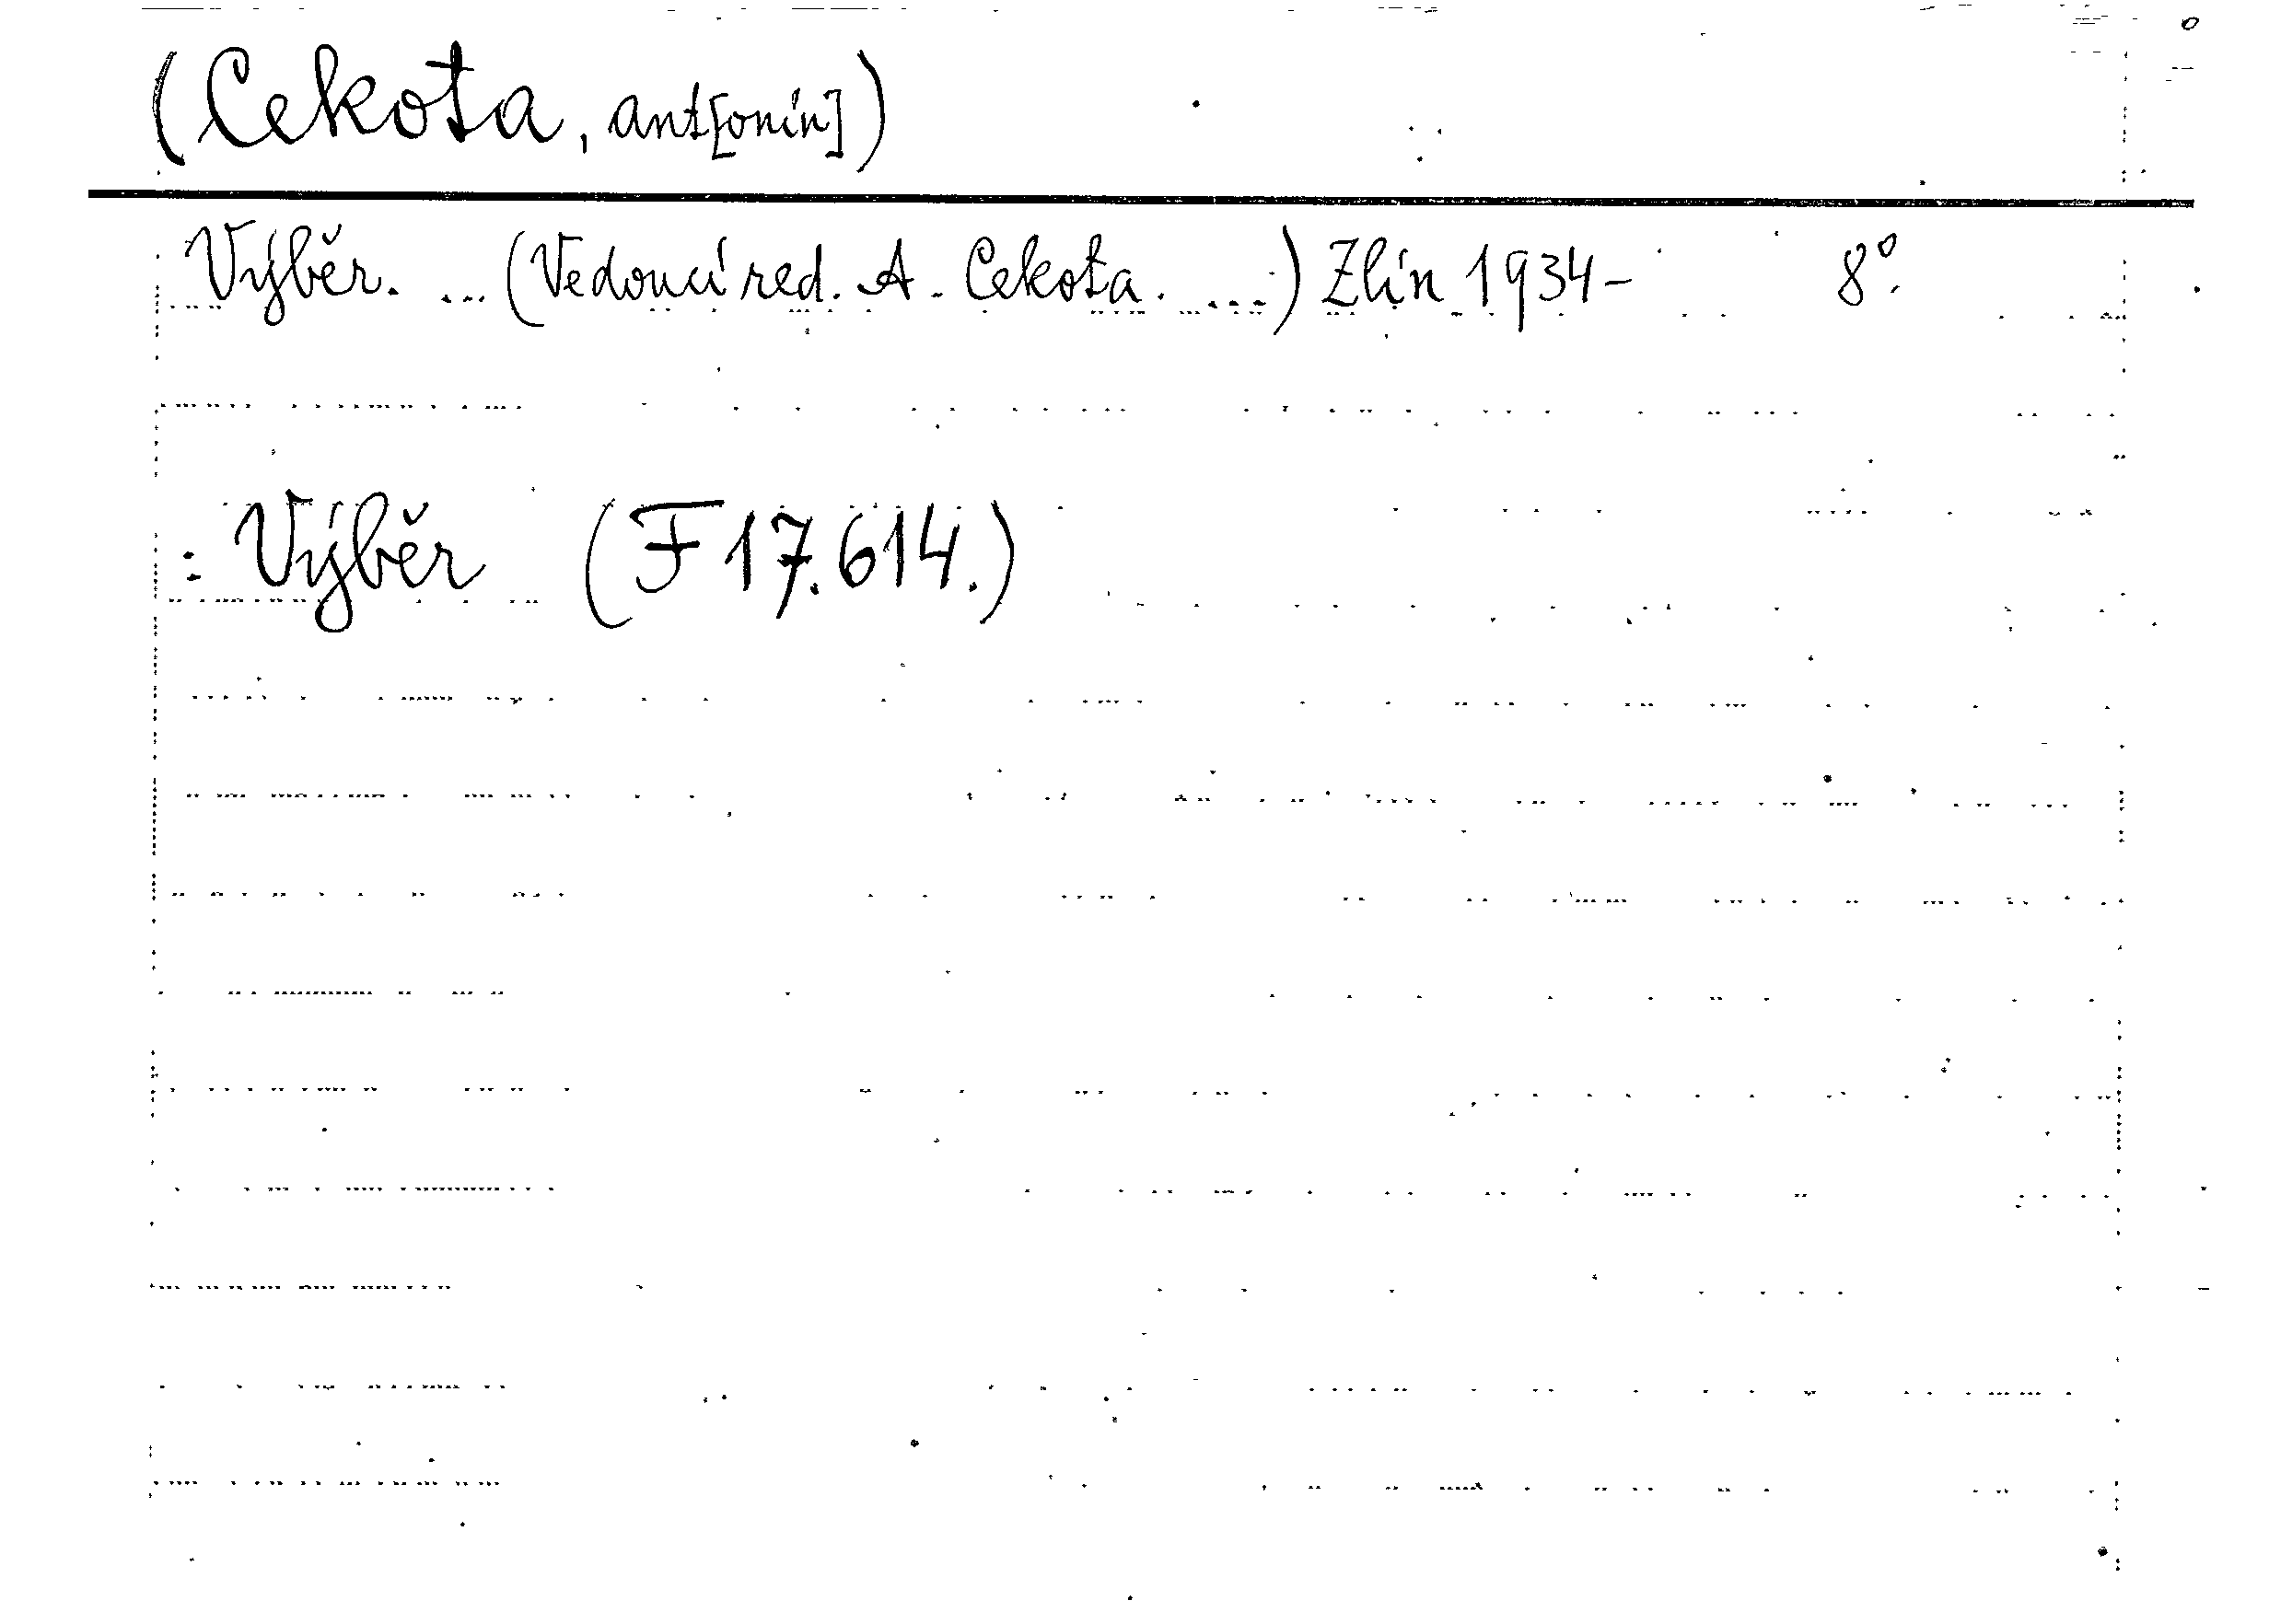 (Cekota, Ant[onín])
Výběr. ... (Vedoucí red. A. Cekota. ....) Zlín 1934- 8°.
: Výběr (F 17.614.)